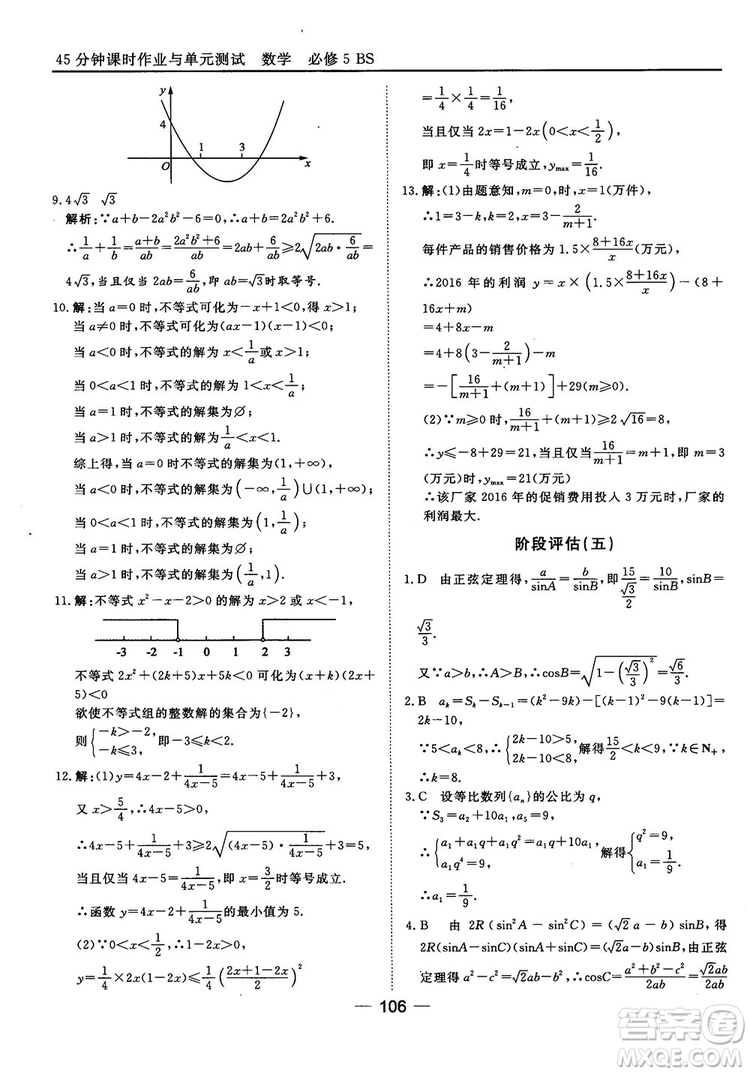 45分钟课时作业与单元测试 数学 必修5 BS
y
4
O 1 3 x
9.4√3 √3
解析:∵a+b-2a²b²-6=0,∴a+b=2a²b²+6.
∴1/a+1/b=(a+b)/ab=(2a²b²+6)/ab=2ab+6/ab≥2√(2ab·6/ab)=
4√3,当且仅当 2ab=6/ab,即 ab=√3时取等号.
10.解:当 a=0 时,不等式可化为-x+1<0,得 x>1.
当 a≠0 时,不等式可化为(ax-1)(x-1)<0.
当 a<0 时,不等式的解集为 x<1/a或 x>1;
当 0<a<1 时,不等式的解集为 1<x<1/a;
当 a=1 时,不等式的解集为∅;
当 a>1 时,不等式的解集为1/a<x<1.
综上得,当 a=0 时,不等式的解集为(1,+∞);
当 a<0 时,不等式的解集为(-∞,1/a)∪(1,+∞);
当 0<a<1 时,不等式的解集为(1,1/a);
当 a=1 时,不等式的解集为∅;
当 a>1 时,不等式的解集为(1/a,1).
11.解:不等式 x²-x-2>0 可化为 x>2 或 x<-1,
-3 -2 -1 0 1 2 3
不等式 2x²+(2k+5)x+5k<0 可化为(x+k)(2x+
5)<0
欲使不等式组的整数解的集合为{-2},
则{-k>-2, -k≤3, 即-3≤k<2.
12.解:(1)y=4x-5+1/(4x-5)=4x-5+1/(4x-5)+5,
又 x>5/4,∴4x-5>0.
∴4x-5+1/(4x-5)+5≥2√((4x-5)·1/(4x-5))+5=2+3=5.
当且仅当 4x-5=1/(4x-5),即 x=3/2时等号成立.
∴函数 y=4x-5+1/(4x-5)的最小值为 5.
(2)∵0<x<1/2,
y=1/4×2x(1-2x)≤1/4×((2x+1-2x)/2)²
=1/4×1/4=1/16,
当且仅当 2x=1-2x(0<x<1/2),
即 x=1/4时等号成立,ymax=1/16.
13.解:(1)由题意知,m=0 时,x=1(万件),
∴1=3-k,∴k=2,∴x=3-2/(m+1).
每件产品的销售价格为 1.5×(8+16x)/x(万元),
∴2016 年的利润 y=x(1.5×(8+16x)/x)-(8+
16x+m)
=4+8x-m
=4+8(3-2/(m+1))-m
=-[16/(m+1)+(m+1)]+29(m≥0)
(2)∵m≥0 时,16/(m+1)+(m+1)≥2√16=8,
∴y≤-8+29=21,当且仅当16/(m+1)=m+1,即 m=3
(万元)时,ymax=21(万元)
∴该厂家 2016 年的促销费用投入 3 万元时,厂家的
利润最大.
阶段评估(五)
1.D 由正弦定理得,a/sinA=b/sinB,即15/(√3/2)=10/sinB,sinB=
√3/3.
又∵a>b,∴A>B,∴cosB=√(1-(√3/3)²)=√6/3.
2.B ak=Sk-Sk-1=(k²-9k)-[(k-1)²-9(k-1)]=
2k-10,
∵5<ak<8,∴{2k-10>5, 2k-10<8, 解得15/2<k<9,∵k∈N+,
∴k=8.
3.C 设等比数列{an}的公比为 q,
∵S3=a2+10a1,a5=9,
∴{a1+a1q+a1q²=a1q+10a1, a1q⁴=9, 解得{q²=9, a1=1/9.
∴a1=1/9.
4.B 由 2R(sin²A-sin²C)=(√2a-b)sinB,得
2R(sinA-sinC)(sinA+sinC)=(√2a-b)sinB,由正弦
定理得 a²-c²=√2ab-b²,∴cosC=(a²+b²-c²)/2ab=√2ab/2ab
106
答案圈